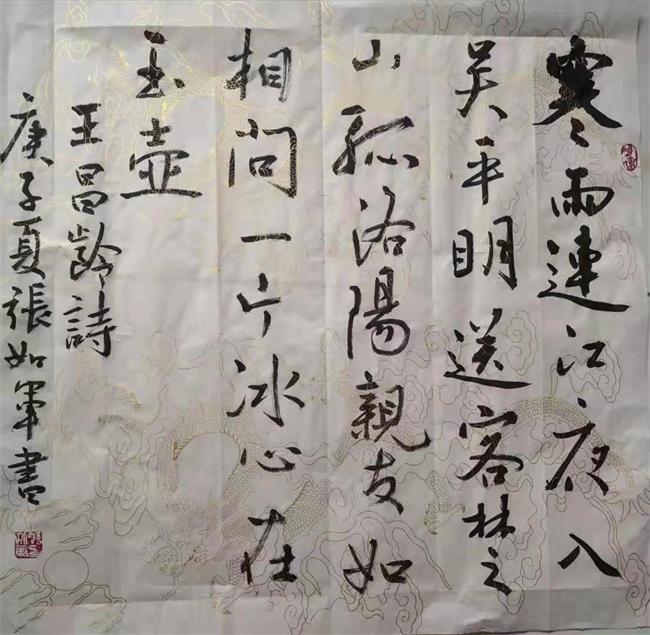 寒雨連江夜入
吴平明送客楚
山孤洛陽親友如
相問一片冰心在
玉壺
王昌齡詩
庚子夏張如軍書